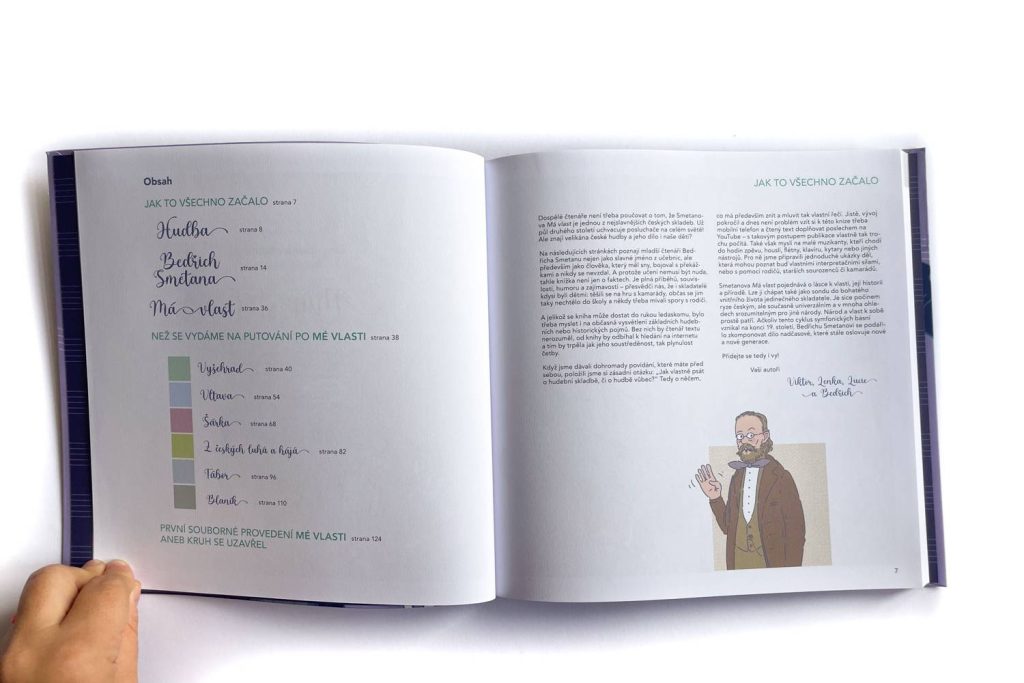 Obsah
JAK TO VŠECHNO ZAČALO strana 7
Hudba strana 8
Bedřich
Smetana strana 14
Má vlast strana 36
NEŽ SE VYDÁME NA PUTOVÁNÍ PO MÉ VLASTI strana 38
Vyšehrad strana 40
Vltava strana 54
Šárka strana 68
Z českých luhů a hájů strana 82
Tábor strana 96
Blaník strana 110
PRVNÍ SOUBORNÉ PROVEDENÍ MÉ VLASTI strana 124
ANEB KRUH SE UZAVŘEL
JAK TO VŠECHNO ZAČALO
Dospělé čtenáře není třeba poučovat o tom, že Smetano-
va Má vlast je jednou z nejslavnějších českých skladeb. Už
půl druhého století uchvacuje posluchače na celém světě!
Ale znají velikána české hudby a jeho dílo i naše děti?
Na následujících stránkách poznají mladší čtenáři Bed-
řicha Smetanu nejen jako slavné jméno z učebnic, ale
především jako člověka, který měl sny, bojoval s překáž-
kami a nikdy se nevzdal. A protože učení nemusí být nuda,
tahle knížka není jen o faktech. Je plná příběhů, souvis-
lostí, humoru a zajímavostí – přesvědčí nás, že i skladatelé
kdysi byli dětmi: těšili se na hru s kamarády, občas se jim
taky nechtělo do školy a někdy třeba mívali spory s rodiči.
A jelikož se kniha může dostat do rukou ledaskomu, bylo
třeba myslet i na občasná vysvětlení základních hudeb-
ních nebo historických pojmů. Bez nich by čtenář textu
nerozuměl, od knihy by odbíhal k hledání na internetu
a tím by trpěla jak jeho soustředěnost, tak plynulost
četby.
Když jsme dávali dohromady povídání, které máte před
sebou, položili jsme si zásadní otázku: „Jak vlastně psát
o hudební skladbě, či o hudbě vůbec?“ Tedy o něčem,
co má především znít a mluvit tak vlastní řečí. Jistě, vývoj
pokročil a dnes není problém vzít si k této knize třeba
mobilní telefon a čtený text doplňovat poslechem na
YouTube – s takovým postupem publikace vlastně tak tro-
chu počítá. Také však myslí na malé muzikanty, kteří chodí
do hodin zpěvu, houslí, flétny, klavíru, kytary nebo jiných
nástrojů. Pro ně jsme připravili jednoduché ukázky děl,
která mohou poznat buď vlastními interpretačními silami,
nebo s pomocí rodičů, starších sourozenců či kamarádů.
Smetanova Má vlast pojednává o lásce k vlasti, její historii
a přírodě. Lze ji chápat také jako sondu do bohatého
vnitřního života jedinečného skladatele. Je sice počinem
ryze českým, ale současně univerzálním a v mnoha ohle-
dech srozumitelným pro jiné národy. Národ a vlast k sobě
prostě patří. Ačkoliv tento cyklus symfonických básní
vznikal na konci 19. století, Bedřichu Smetanovi se podaři-
lo zkomponovat dílo nadčasové, které stále oslovuje nové
a nové generace.
Přidejte se tedy i vy!
Vaši autoři
Viktor, Lenka, Lucie
a Bedřich
7